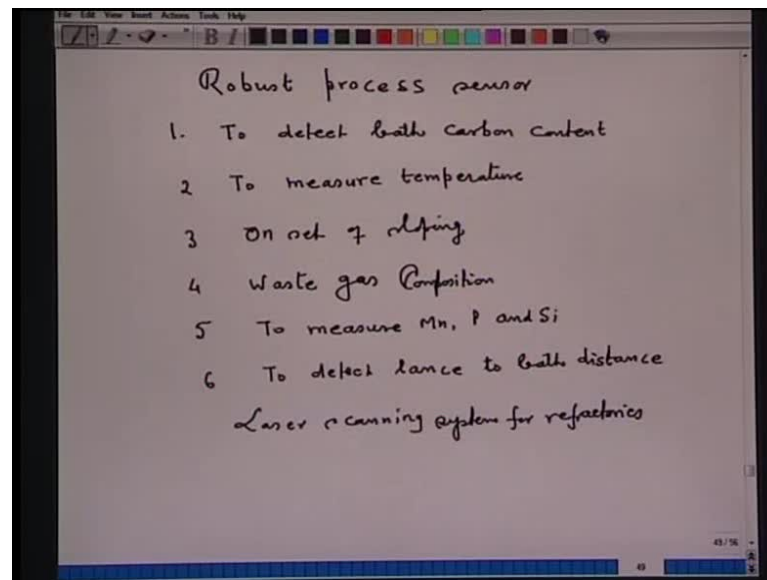 File Edit View Insert Actions Tools Help
B I
Robust process sensor
1. To detect bath carbon content
2 To measure temperature
3 On set of sloping
4 Waste gas Composition
5 To measure Mn, P and Si
6 To detect lance to bath distance
Laser scanning system for refractories
49/56
49